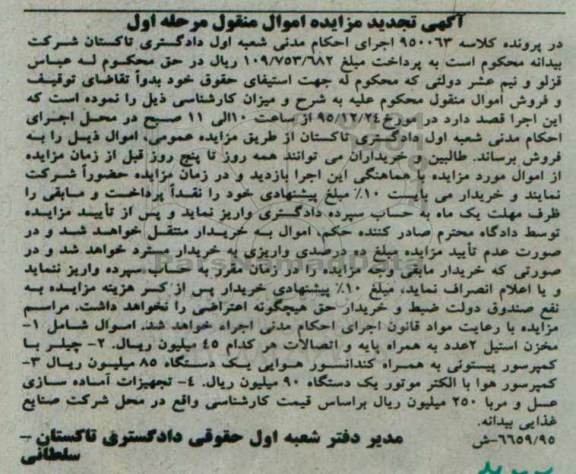 آگهی تجدید مزایده اموال منقول مرحله اول
در پرونده کلاسه ۹۵۰۰۶۳ اجرای احکام مدنی شعبه اول دادگستری تاکستان شرکت
بیدانه محکوم است به پرداخت مبلغ ۱۰۹/۷۵۳/۶۸۲ ریال در حق محکوم له عباس
قزلو و نیم عشر دولتی که محکوم له جهت استیفای حقوق خود بدواً تقاضای توقیف
و فروش اموال منقول محکوم علیه به شرح و میزان کارشناسی ذیل را نموده است که
این اجرا قصد دارد در مورخ ۹۵/۱۲/۲۴ از ساعت ۱۰الی ۱۱ صبح در محل اجرای
احکام مدنی شعبه اول دادگستری تاکستان از طریق مزایده عمومی، اموال ذیل را به
فروش برساند. طالبین و خریداران می توانند همه روز تا پنج روز قبل از زمان مزایده
از اموال مورد مزایده با هماهنگی این اجرا بازدید و در زمان مزایده حضوراً شرکت
نمایند و خریدار می بایست ۱۰٪ مبلغ پیشنهادی خود را نقداً پرداخت و مابقی را
ظرف مهلت یک ماه به حساب سپرده دادگستری واریز نماید و پس از تأیید مزایده
توسط دادگاه محترم صادر کننده حکم، اموال به خریدار منتقل خواهد شد و در
صورت عدم تأیید مزایده مبلغ ده درصدی واریزی به خریدار مسترد خواهد شد و در
صورتی که خریدار مابقی وجه مزایده را در زمان مقرر به حساب سپرده واریز ننماید
و یا اعلام انصراف نماید، مبلغ ۱۰٪ پیشنهادی خریدار پس از کسر هزینه مزایده به
نفع صندوق دولت ضبط و خریدار حق هیچگونه اعتراضی را نخواهد داشت. مراسم
مزایده با رعایت مواد قانون اجرای احکام مدنی اجراء خواهد شد. اموال شامل ۱-
مخزن استیل ۲عدد به همراه پایه و اتصالات هر کدام ۴۵ میلیون ریال. ۲- چیلر با
کمپرسور پیستونی به همراه کندانسور هوایی یک دستگاه ۸۵ میلیون ریال ۳-
کمپرسور هوا با الکتر موتور یک دستگاه ۹۰ میلیون ریال. ۴- تجهیزات آماده سازی
عسل و مربا ۲۵۰ میلیون ریال براساس قیمت کارشناسی واقع در محل شرکت صنایع
غذایی بیدانه.
۶۶۵۹/۹۵-ش
مدیر دفتر شعبه اول حقوقی دادگستری تاکستان –
سلطانی